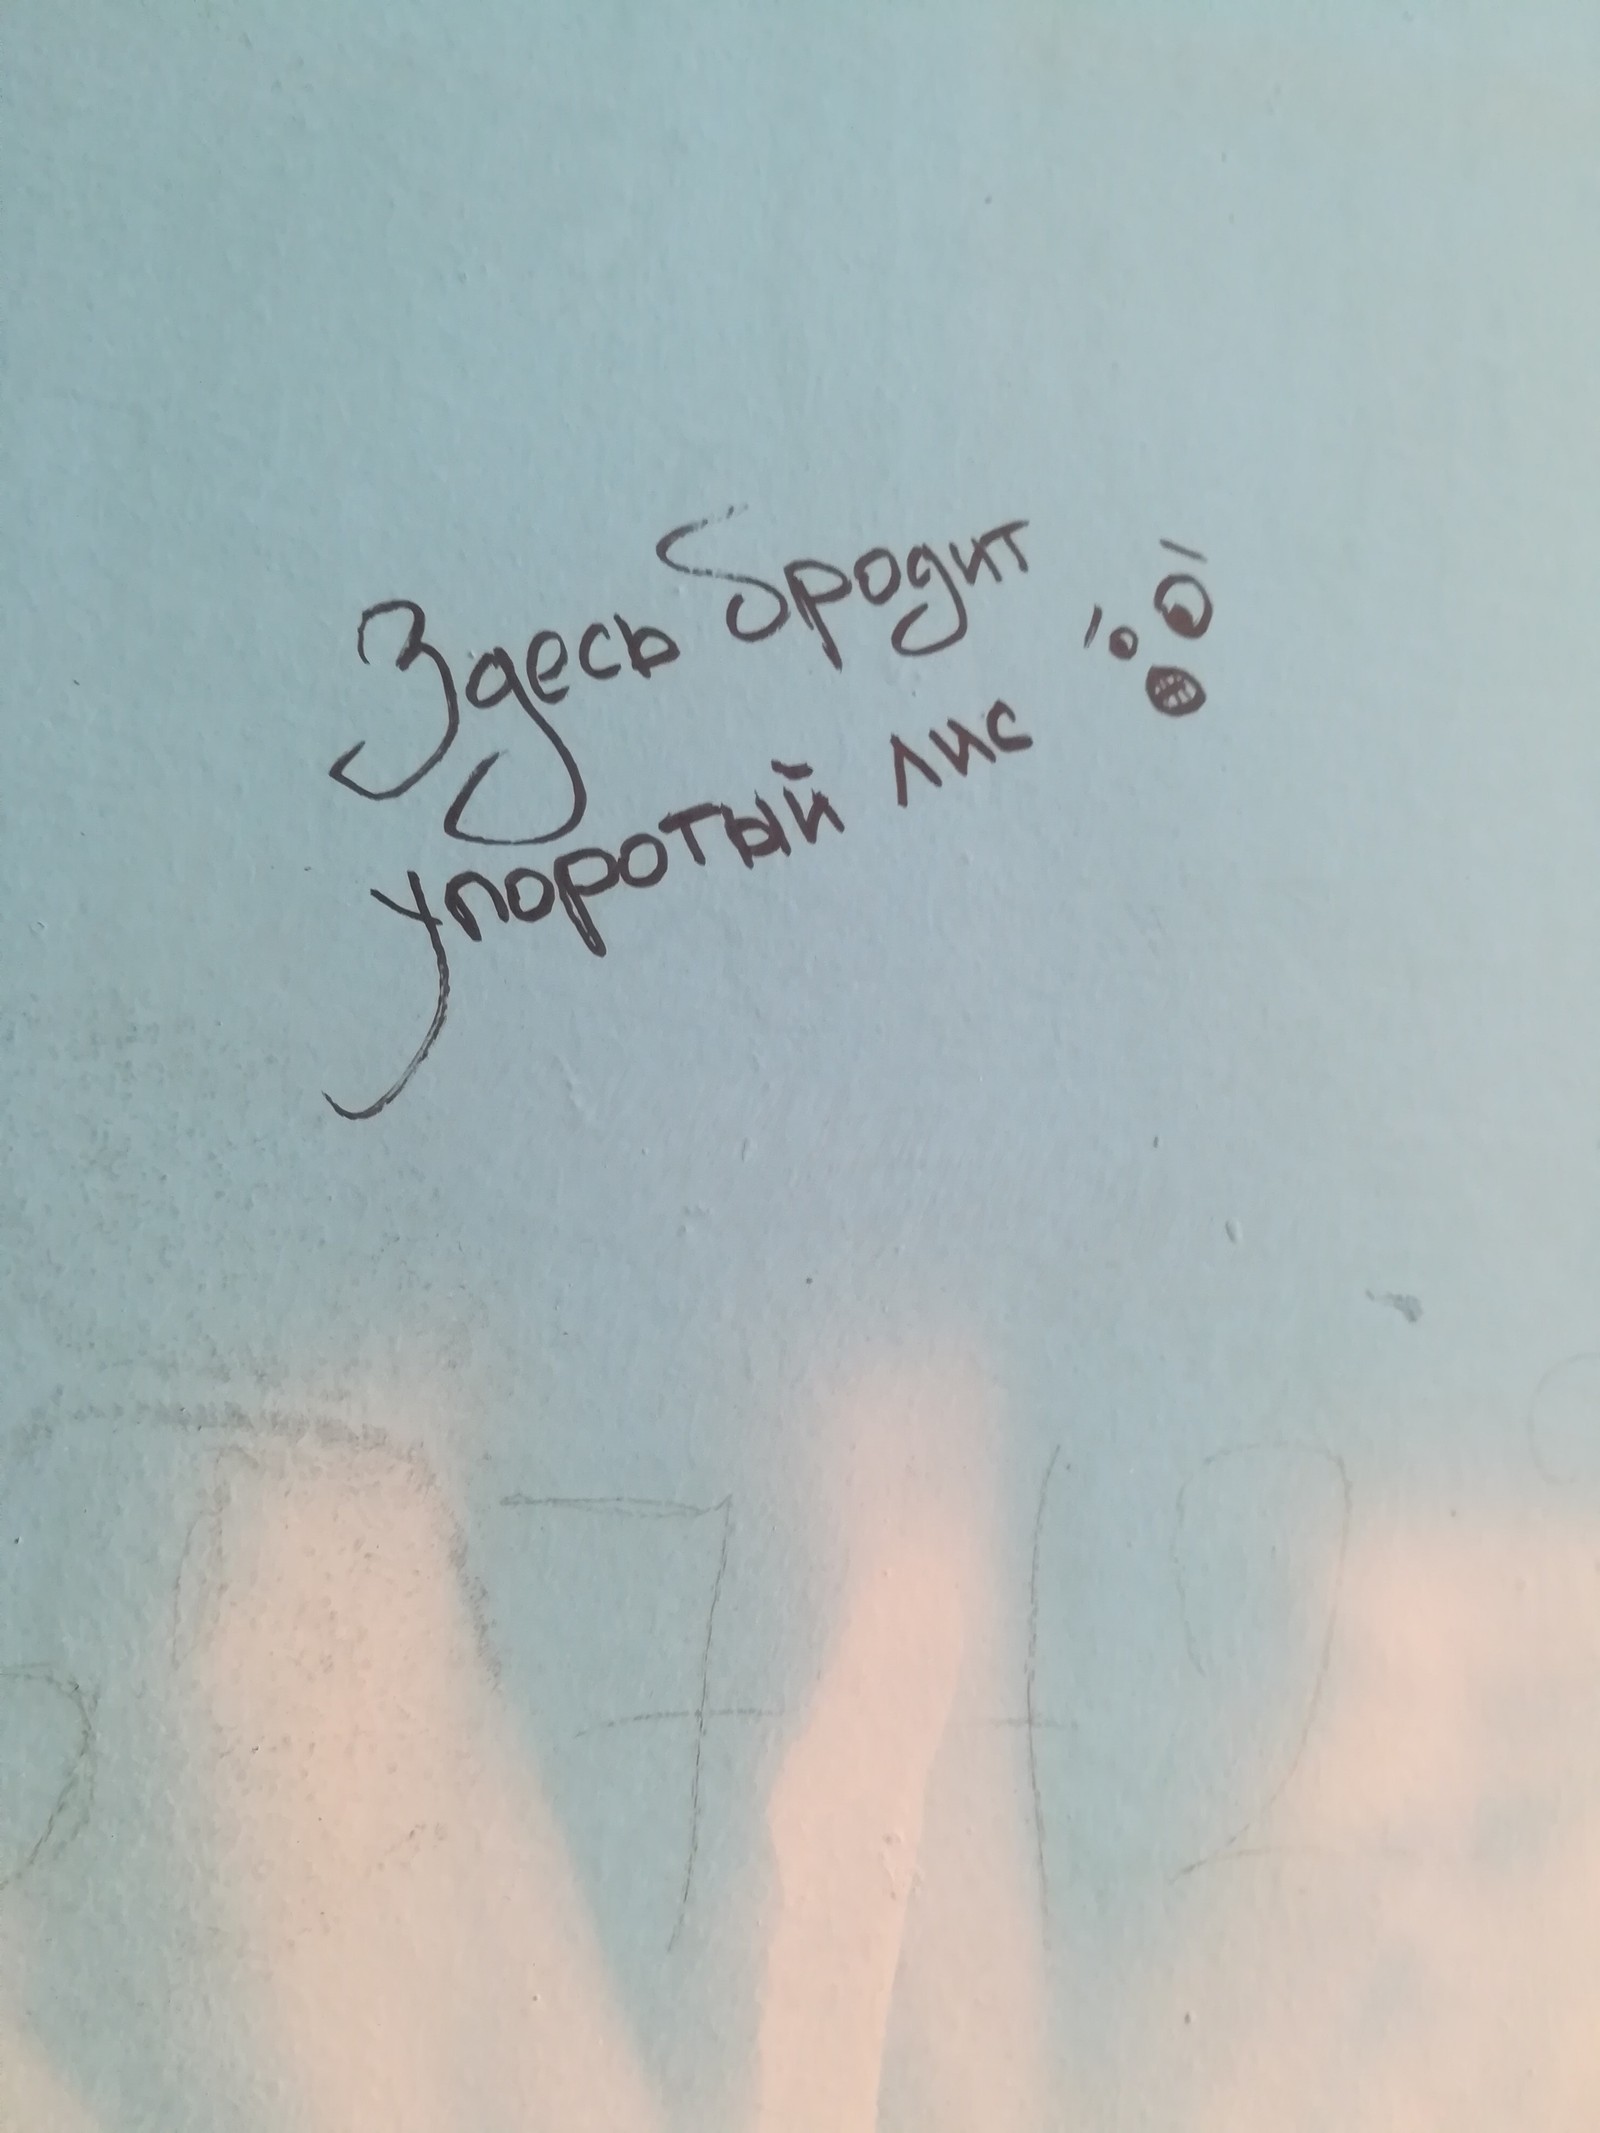 Здесь бродит
упоротый лис